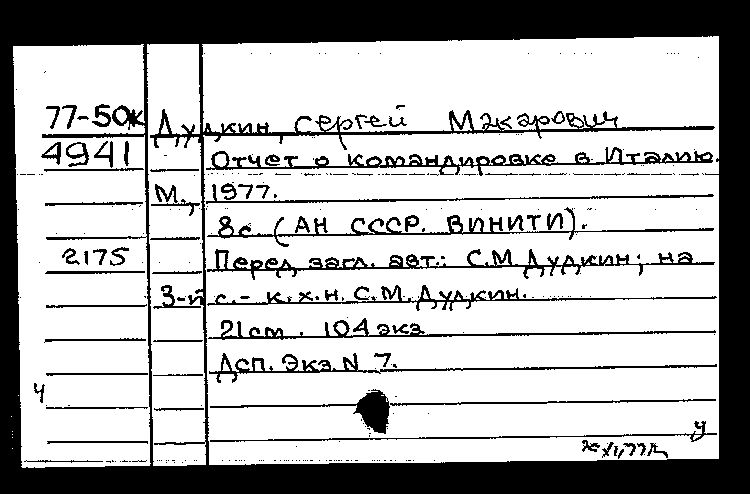 77-50к Дудкин, Сергей Макарович
4941 Отчет о командировке в Италию.
М., 1977.
8с. (АН СССР. ВИНИТИ).
2175 Перед загл. авт.: С.М Дудкин; на
3-й с.- к.х.н. С.М. Дудкин.
21см. 104 экз
Дсп. Экз. N 7.
ч
у